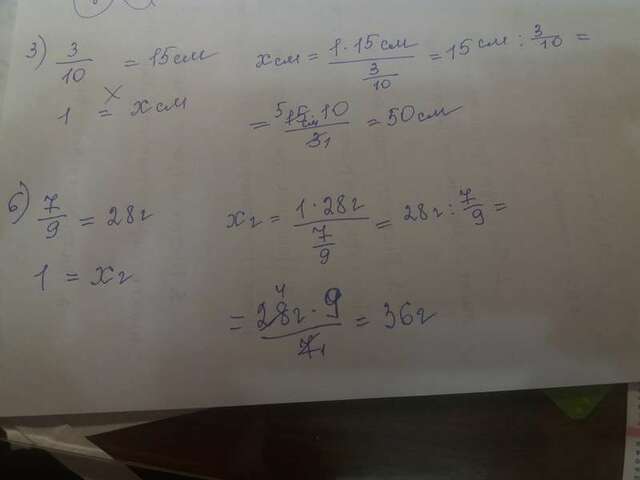 3) 3/10 = 15см
1 = x см
x см = 1·15см / 3/10 = 15см : 3/10 =
= 15см·10 / 3 = 50см
6) 7/9 = 28г
1 = x г
x г = 1·28г / 7/9 = 28г : 7/9 =
= 28г·9 / 7 = 36г